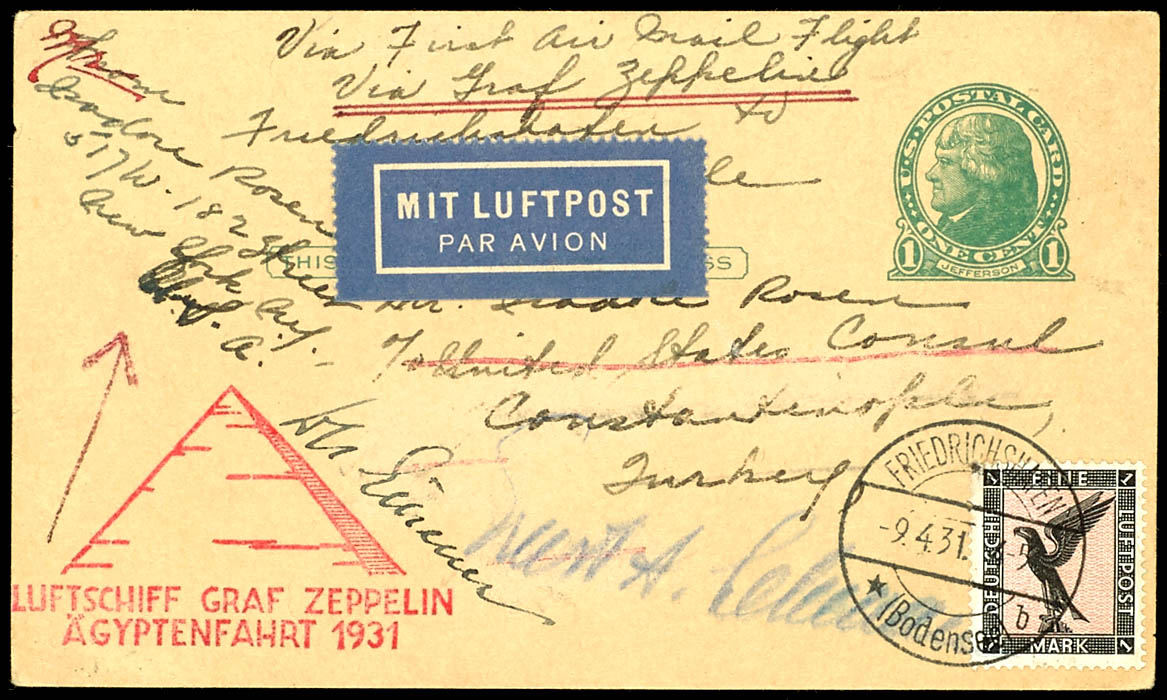 Via First Air Mail Flight
Via Graf Zeppelin
Friedrichshafen to
From
Rosen
517 W. 182 Street
New York City.
U.S. A.
MIT LUFTPOST
PAR AVION
THIS
SS
U.S. POSTAL CARD
1 ONE CENT 1
JEFFERSON
Dr. Rosen
United States Consul
Constantinople,
Turkey
Dr. Eckener
LUFTSCHIFF GRAF ZEPPELIN
ÄGYPTENFAHRT 1931
FRIEDRICHSHAFEN
-9.4.31.
b
★ (Bodensee)
1 EINE 1
DEUTSCHE
LUFTPOST
1 MARK 1